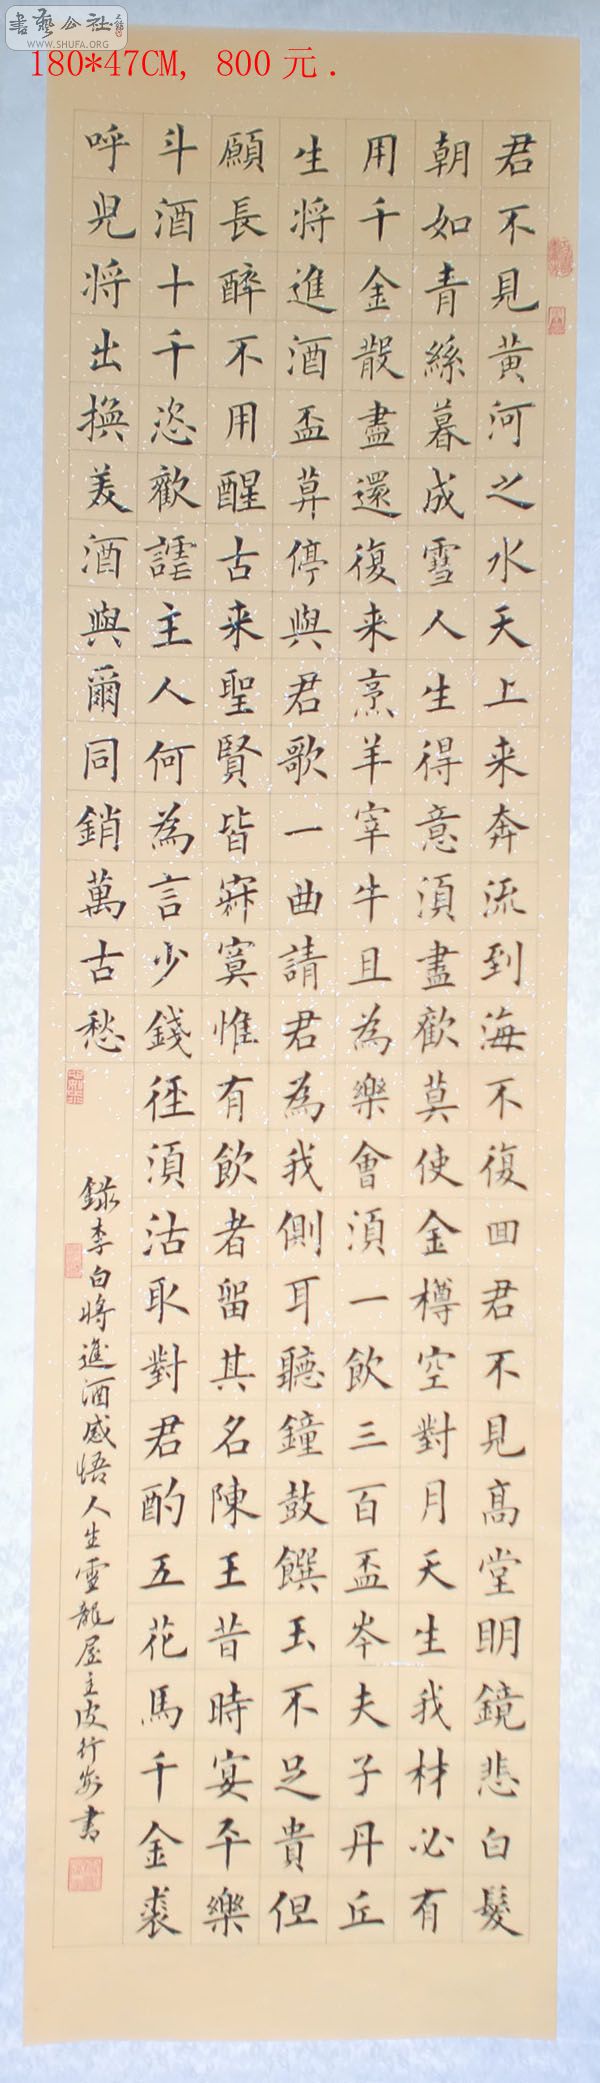 書藝公社
WWW.SHUFA.ORG
180*47CM, 800元.
君不見黄河之水天上来奔流到海不復囬君不見高堂明鏡悲白髮
朝如青絲暮成雪人生得意須盡歡莫使金樽空對月天生我材必有
用千金散盡還復来烹羊宰牛且為樂會須一飲三百盃岑夫子丹丘
生将進酒盃莫停與君歌一曲請君為我側耳聽鐘鼓饌玉不足貴但
願長醉不用醒古来聖賢皆寂寞惟有飲者留其名陳王昔時宴平樂
斗酒十千恣歡謔主人何為言少錢徑須沽取對君酌五花馬千金裘
呼兒将出換美酒與爾同銷萬古愁
録李白将進酒感悟人生龍屋主皮行書